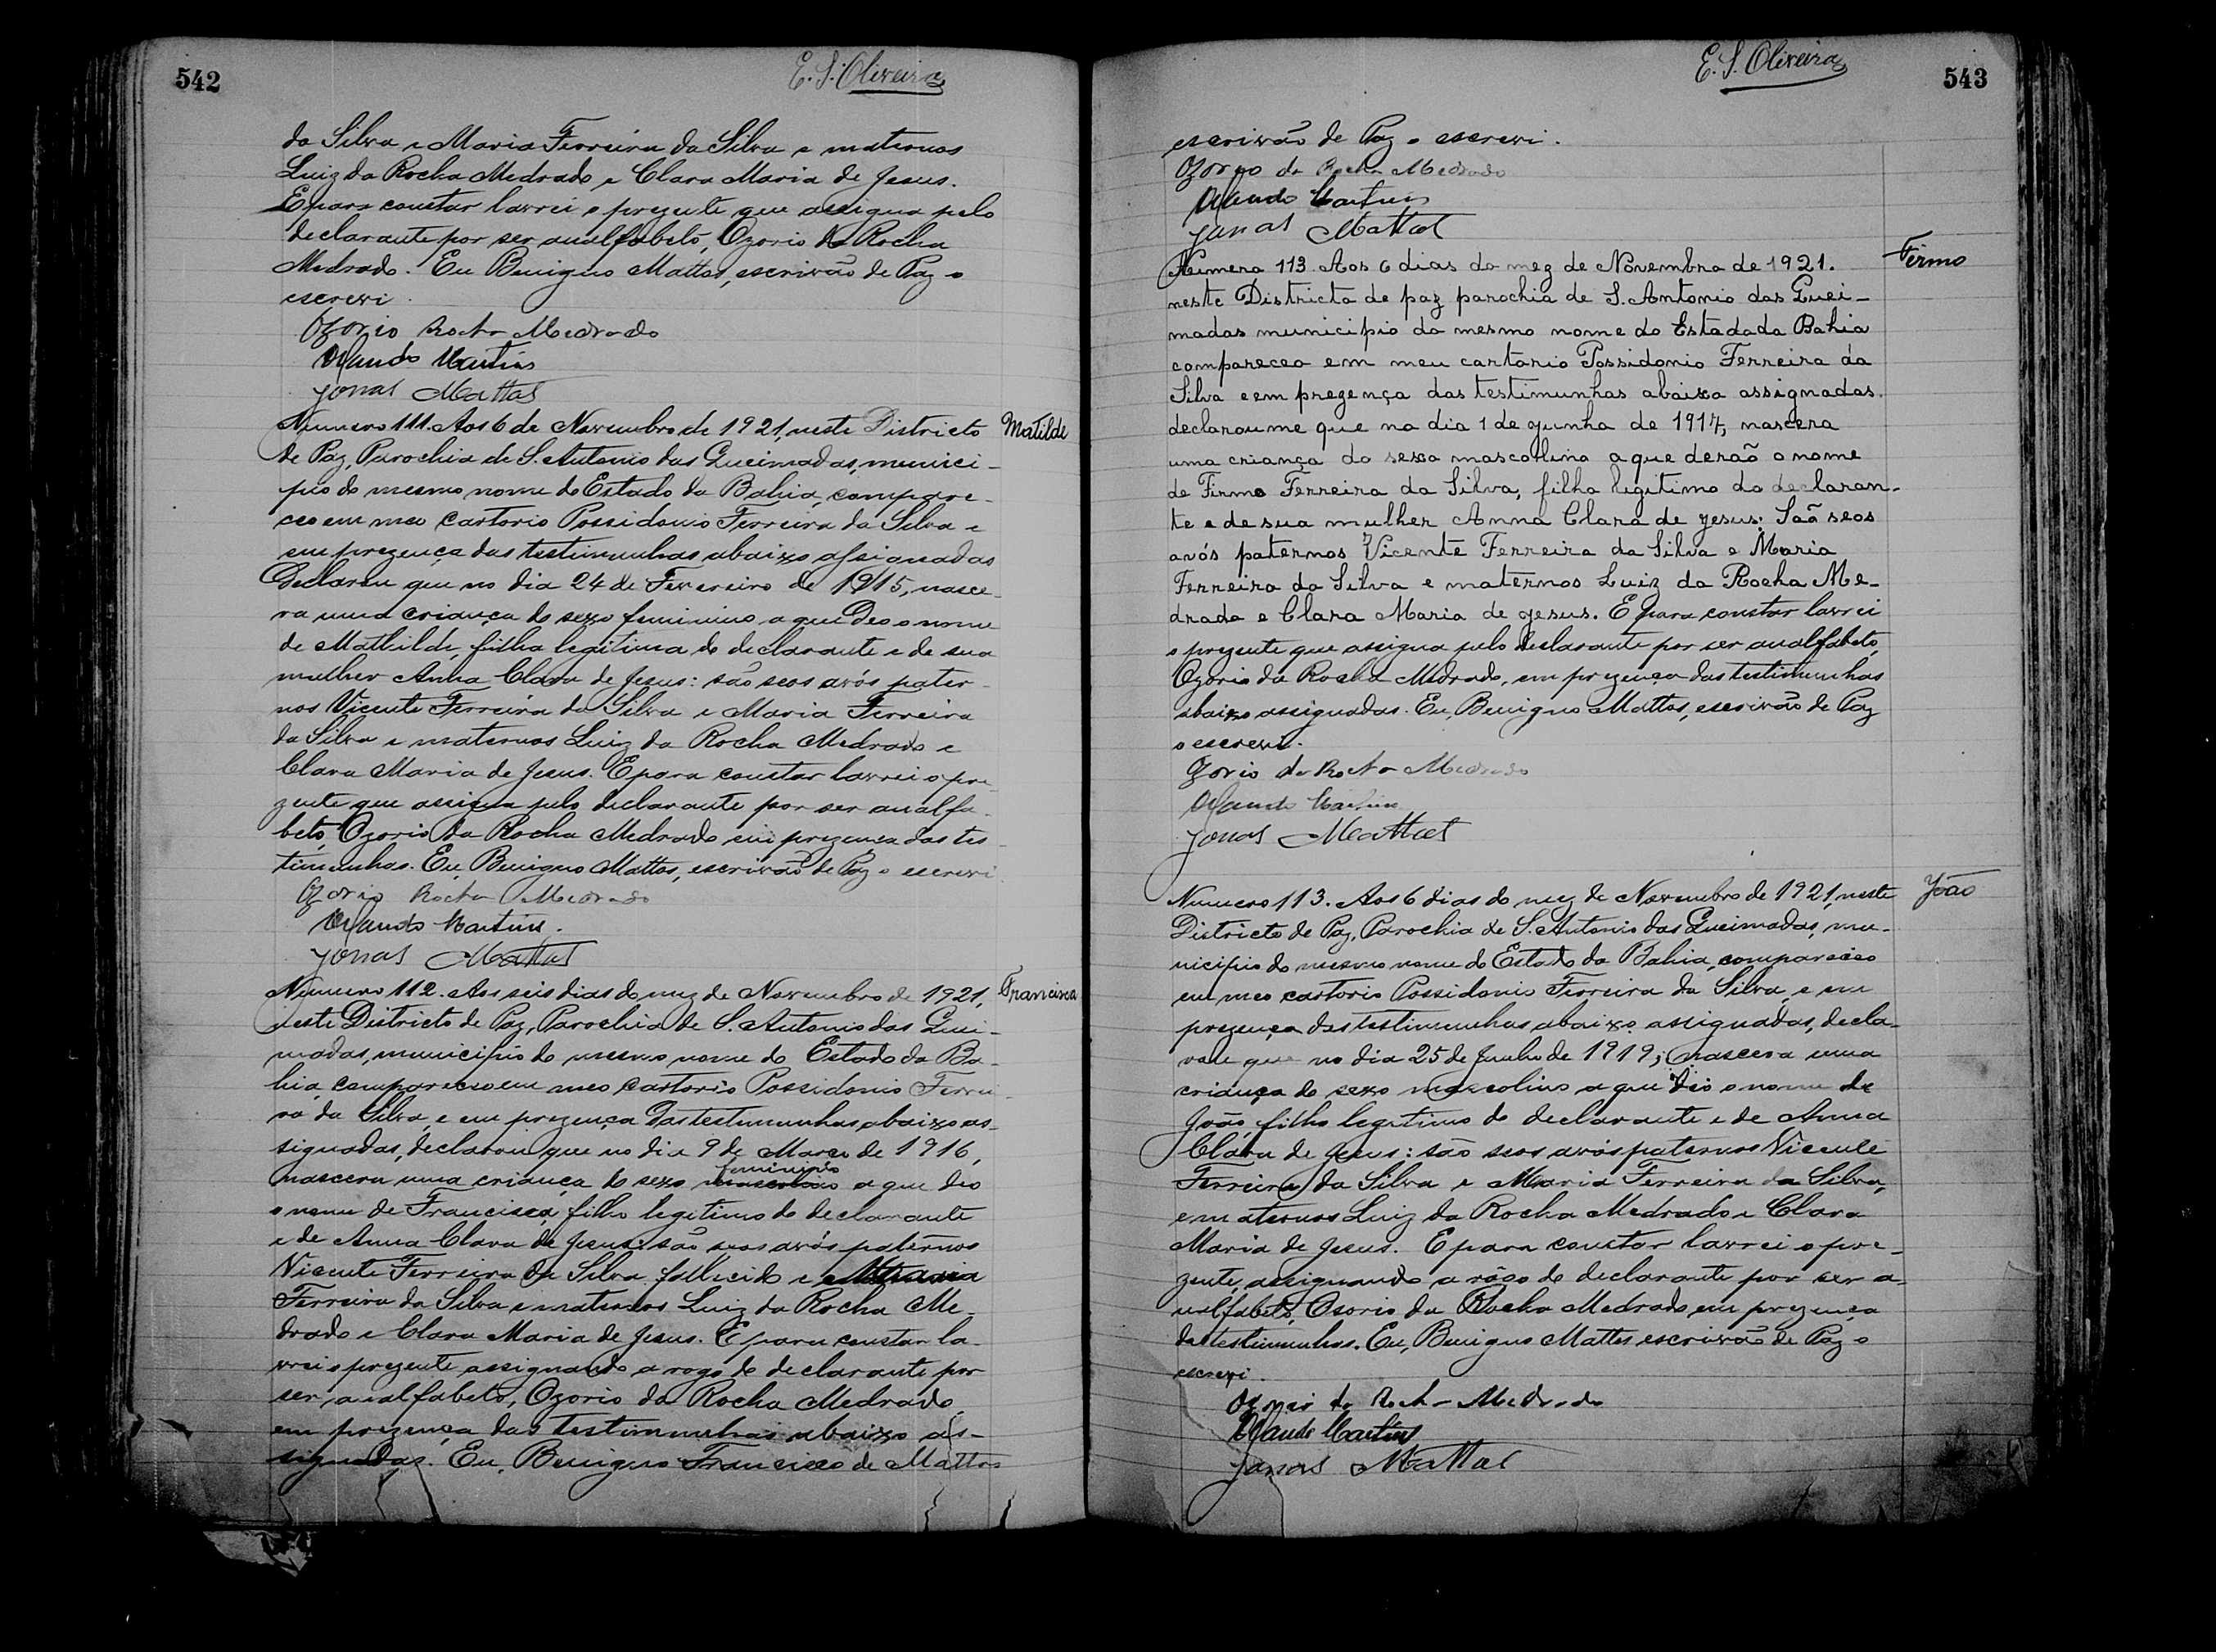 542
E. S. Oliveira
da Silva e Maria Ferreira da Silva e maternos
Luiz da Rocha Medrado e Clara Maria de Jesus.
E para constar lavrei o prezente que assigna pelo
declarante por ser analfabeto, Ozorio da Rocha
Medrado. Eu Benigno Mattos, escrivão de Paz o
escrevi.
Ozorio Rocha Medrado
Orlando Martins
Jonas Mattos
Numero 111. Aos 6 de Novembro de 1921, neste Districto
Matilde
de Paz, Parochia de S. Antonio das Queimadas, munici-
pio do mesmo nome do Estado da Bahia, compare-
ceo em meo cartorio Possidonio Ferreira da Silva e
em prezença das testimunhas abaixo assignadas
declarou que no dia 24 de Fevereiro de 1915, nasce-
ra uma criança do sexo feminino a que deo o nome
de Mathilde, filha legitima do declarante e de sua
mulher Anna Clara de Jesus: são seos avós pater-
nos Vicente Ferreira da Silva e Maria Ferreira
da Silva e maternos Luiz da Rocha Medrado e
Clara Maria de Jesus. E para constar lavrei o pre-
zente que assigna pelo declarante por ser analfa-
beto, Ozorio da Rocha Medrado em prezença das tes-
timunhas. Eu, Benigno Mattos, escrivão de Paz o escrevi.
Ozorio Rocha Medrado
Orlando Martins.
Jonas Mattos
Numero 112. Aos seis dias do mez de Novembro de 1921,
Francisca
neste Districto de Paz, Parochia de S. Antonio das Quei-
madas, municipio do mesmo nome do Estado da Ba-
hia, compareceo em meo cartorio Possidonio Ferrei-
ra da Silva, e em prezença das testimunhas abaixo as-
signadas, declarou que no dia 9 de Março de 1916,
feminino
nascera uma criança do sexo masculino a que deo
o nome de Francisca, filho legitimo do declarante
e de Anna Clara de Jesus: são seos avós paternos
Vicente Ferreira da Silva fallecido e Maria
Ferreira da Silva e maternos Luiz da Rocha Me-
drado e Clara Maria de Jesus. E para constar la-
vrei o prezente, assignando a rogo do declarante por
ser analfabeto, Ozorio da Rocha Medrado,
em prezença das testimunhas abaixo as-
signadas. Eu, Benigno Francisco de Mattos
E. S. Oliveira
543
escrivão de Paz o escrevi.
Ozorio da Rocha Medrado
Orlando Martins
Jonas Mattos
Numero 113 Aos 6 dias do mez de Novembro de 1921.
Firmo
neste Districto de paz parochia de S. Antonio das Quei-
madas municipio do mesmo nome do Estado da Bahia
compareceo em meu cartorio Possidonio Ferreira da
Silva e em prezença das testimunhas abaixo assignadas.
declaroume que no dia 1 de junho de 1917, nascera
uma criança do sexo mascolino a que derão o nome
de Firmo Ferreira da Silva, filho legitimo do declaran-
te e de sua mulher Anna Clara de Jesus: São seos
avós paternos Vicente Ferreira da Silva e Maria
Ferreira da Silva e maternos Luiz da Rocha Me-
drado e Clara Maria de Jesus. E para constar lavrei
o prezente que assigna pelo declarante por ser analfabeto,
Ozorio da Rocha Medrado, em prezença das testimunhas
abaixo assignadas. Eu, Benigno Mattos, escrivão de Paz
o escrevi.
Ozorio da Rocha Medrado
Orlando Martins
Jonas Mattos
Numero 113. Aos 6 dias do mez de Novembro de 1921, neste
João
Districto de Paz, Parochia de S. Antonio das Queimadas, mu-
nicipio do mesmo nome do Estado da Bahia, compareceo
em meo cartorio Possidonio Ferreira da Silva, e em
prezença das testimunhas abaixo assignadas, decla-
rou que no dia 25 de Junho de 1919, nascera uma
criança do sexo mascolino a que deo o nome de
João, filho legitimo do declarante e de Anna
Clara de Jesus: são seos avós paternos Vicente
Ferreira da Silva e Maria Ferreira da Silva,
e maternos Luiz da Rocha Medrado e Clara
Maria de Jesus. E para constar lavrei o pre-
zente, assignando a rôgo do declarante por ser a-
nalfabeto, Osorio da Rocha Medrado, em prezença
das testimunhas. Eu, Benigno Mattos escrivão de Paz o
escrevi.
Ozorio da Rocha Medrado
Orlando Martins
Jonas Mattos